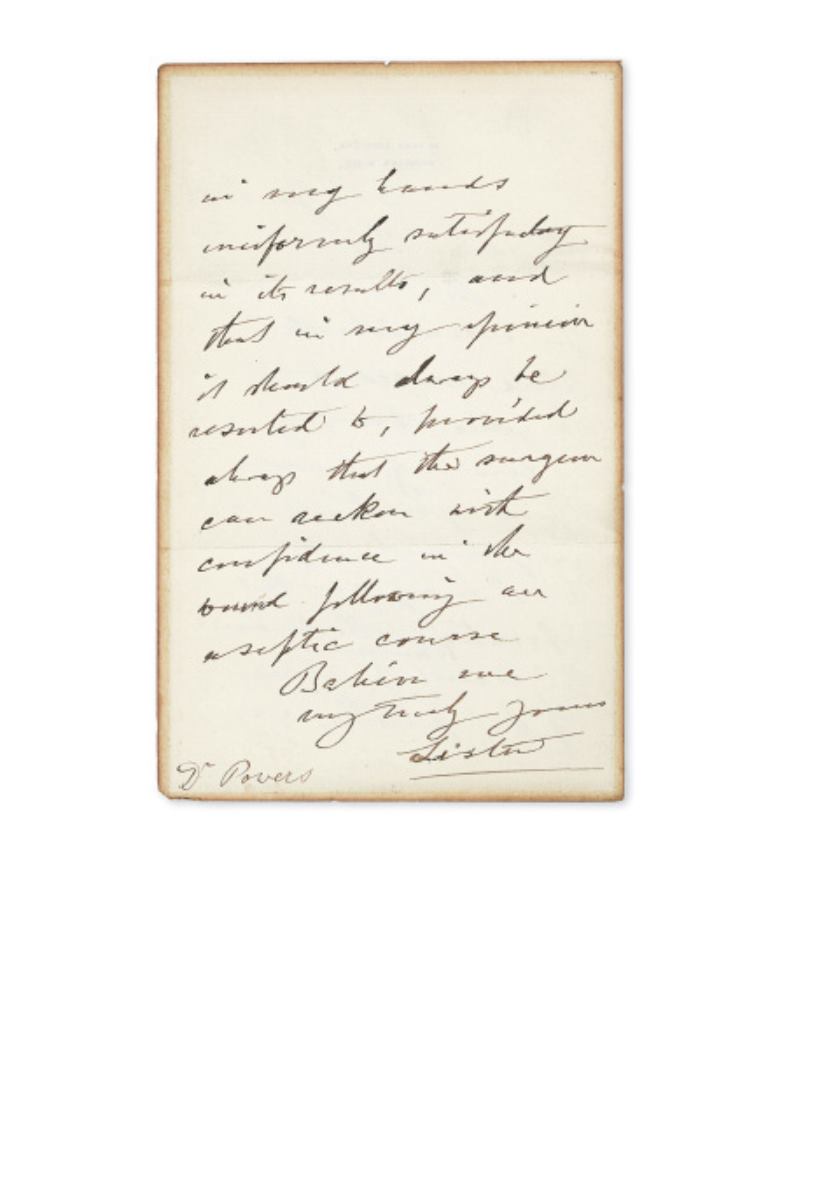 in my hands
uniformly satisfactory
in its results, and
that in my opinion
it should always be
resorted to, provided
always that the surgeon
can reckon with
confidence in the
wound following an
aseptic course
Believe me
very truly yours
Lister
Dr Powers